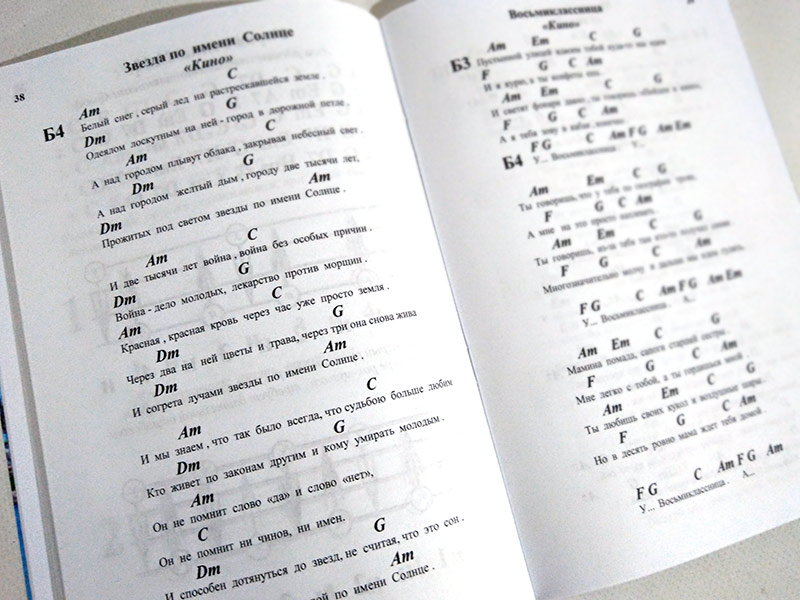 38
Звезда по имени Солнце
«Кино»
Б4
Am C
Белый снег, серый лед на растрескавшейся земле.
Dm G
Одеялом лоскутным на ней - город в дорожной петле.
Am C
А над городом плывут облака, закрывая небесный свет.
Dm G
А над городом желтый дым, городу две тысячи лет,
Dm Am
Прожитых под светом звезды по имени Солнце.
Am C
И две тысячи лет война, война без особых причин.
Dm G
Война - дело молодых, лекарство против морщин.
Am C
Красная, красная кровь через час уже просто земля.
Dm G
Через два на ней цветы и трава, через три она снова жива
Dm Am
И согрета лучами звезды по имени Солнце.
Am C
И мы знаем, что так было всегда, что судьбою больше любим
Dm G
Кто живет по законам другим и кому умирать молодым.
Am
Он не помнит слово «да» и слово «нет»,
C
Он не помнит ни чинов, ни имен.
Dm G
И способен дотянуться до звезд, не считая, что это сон.
Am
по имени Солнце.
Восьмиклассница
«Кино»
Б3
Am Em C G
Пустынной улицей вдвоем с тобой куда-то мы идем
F G C Am
И я курю, а ты конфеты ешь.
Am Em C G
И светят фонари давно, ты говоришь, «Пойдем в кино»,
F G C Am
А я тебя зову в кабак, конечно.
Б4
F G C Am F G Am Em
У... Восьмиклассница. У...
Am Em C G
Ты говоришь, что у тебя по географии трояк,
F G C Am
А мне на это просто наплевать.
Am Em C G
Ты говоришь, из-за тебя там кто-то получил синяк,
F G C Am
Многозначительно молчу и дальше мы идем гулять.
F G C Am F G Am Em
У... Восьмиклассница. А...
Am Em C G
Мамина помада, сапоги старшей сестры.
F G C Am
Мне легко с тобой, а ты гордишься мной.
Am Em C G
Ты любишь своих кукол и воздушные шары.
F G C Am
Но в десять ровно мама ждет тебя домой.
F G C Am F G Am
У... Восьмиклассница. А...